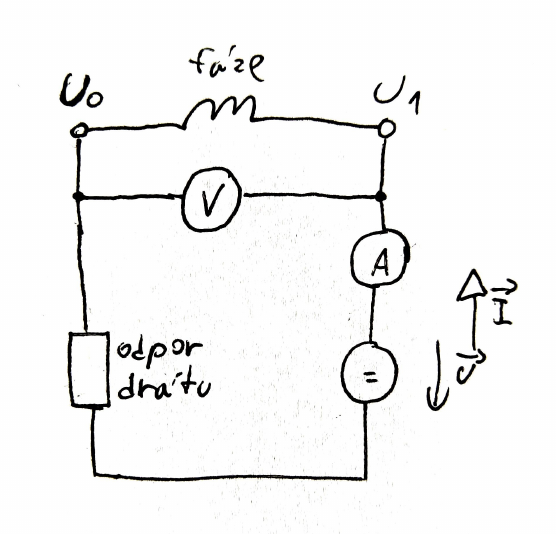 fáze
U₀ U₁
V
A
odpor
drátu
=
I
U